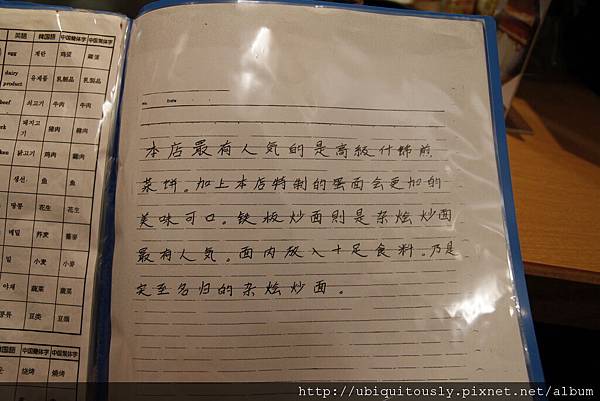 英語 韓国語 中国簡体字 中国繁体字
egg 계란 鸡蛋 雞蛋
dairy product 유제품 乳制品 乳製品
beef 쇠고기 牛肉 牛肉
돼지고기 猪肉 豬肉
닭고기 鸡肉 雞肉
생선 鱼 魚
땅콩 花生 花生
메밀 荞麦 蕎麥
밀 小麦 小麥
야채 蔬菜 蔬菜
콩류 豆类 豆類
韓国語 中国簡体字 中国繁体字
烧烤 燒烤
No. Date
本店最有人気的是高級什锦煎
菜饼。加上本店特制的蛋面会更加的
美味可口。铁板炒面則是杂烩炒面
最有人気。面内放入十足食料。乃是
实至名归的杂烩炒面。
http://ubiquitously.pixnet.net/album